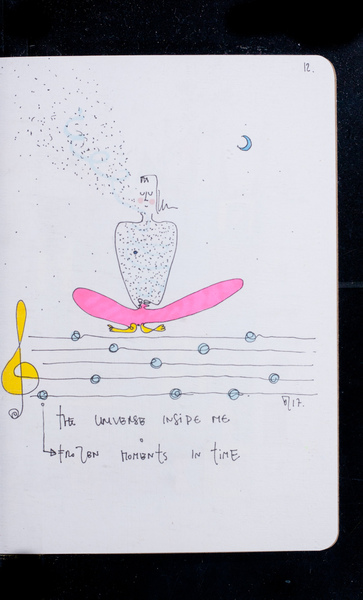 12.
THE UNIVERSE INSIDE ME
FROZEN MOMENTS IN TIME